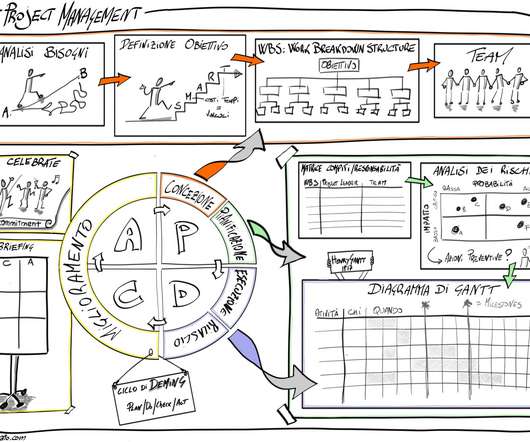 PROJECT MANAGEMENT
ANALISI BISOGNI
A
B
DEFINIZIONE OBIETTIVO
S
M
A
R
T
COSTI TEMPI
=
VINCOLI
WBS: WORK BREAKDOWN STRUCTURE
OBIETTIVO
TEAM
CELEBRATE
COMMITMENT
BRIEFING
C A
CONCEZIONE
PIANIFICAZIONE
ESECUZIONE
RILASCIO
MIGLIORAMENTO
A P
C D
CICLO DI DEMING
PLAN/DO/CHECK/ACT
MATRICE COMPITI/RESPONSABILITÀ
WBS PROJECT LEADER TEAM
ANALISI DEI RISCHI
PROBABILITÀ
BASSA
IMPATTO
BASSO
A
B
C
D
E
F
AZIONI PREVENTIVE?
HENRY GANTT
1917
DIAGRAMMA DI GANTT
= MILESTONES
ATTIVITÀ CHI QUANDO